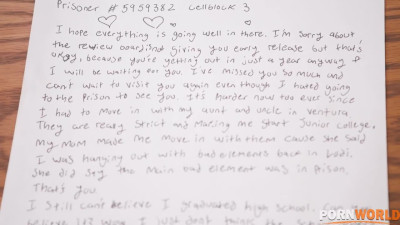 Prisoner # 5959382 Cellblock 3
I hope everything is going well in there. I'm sorry about
the review board giving you early release but that's
okay, because you're getting out in just a year anyway &
I will be waiting for you. I've missed you so much and
can't wait to visit you again even though I hated going
to the prison to see you. It's harder now too ever since
I had to move in with my aunt and uncle in Ventura
They are really strict and making me start Junior College.
My Mom made me move in with them cause she said
I was hanging out with bad elements back in Lodi.
She did say the main bad element was in prison.
That's you.
I still can't believe I graduated high school. Can you
believe it?
I just don't
PORNWORLD